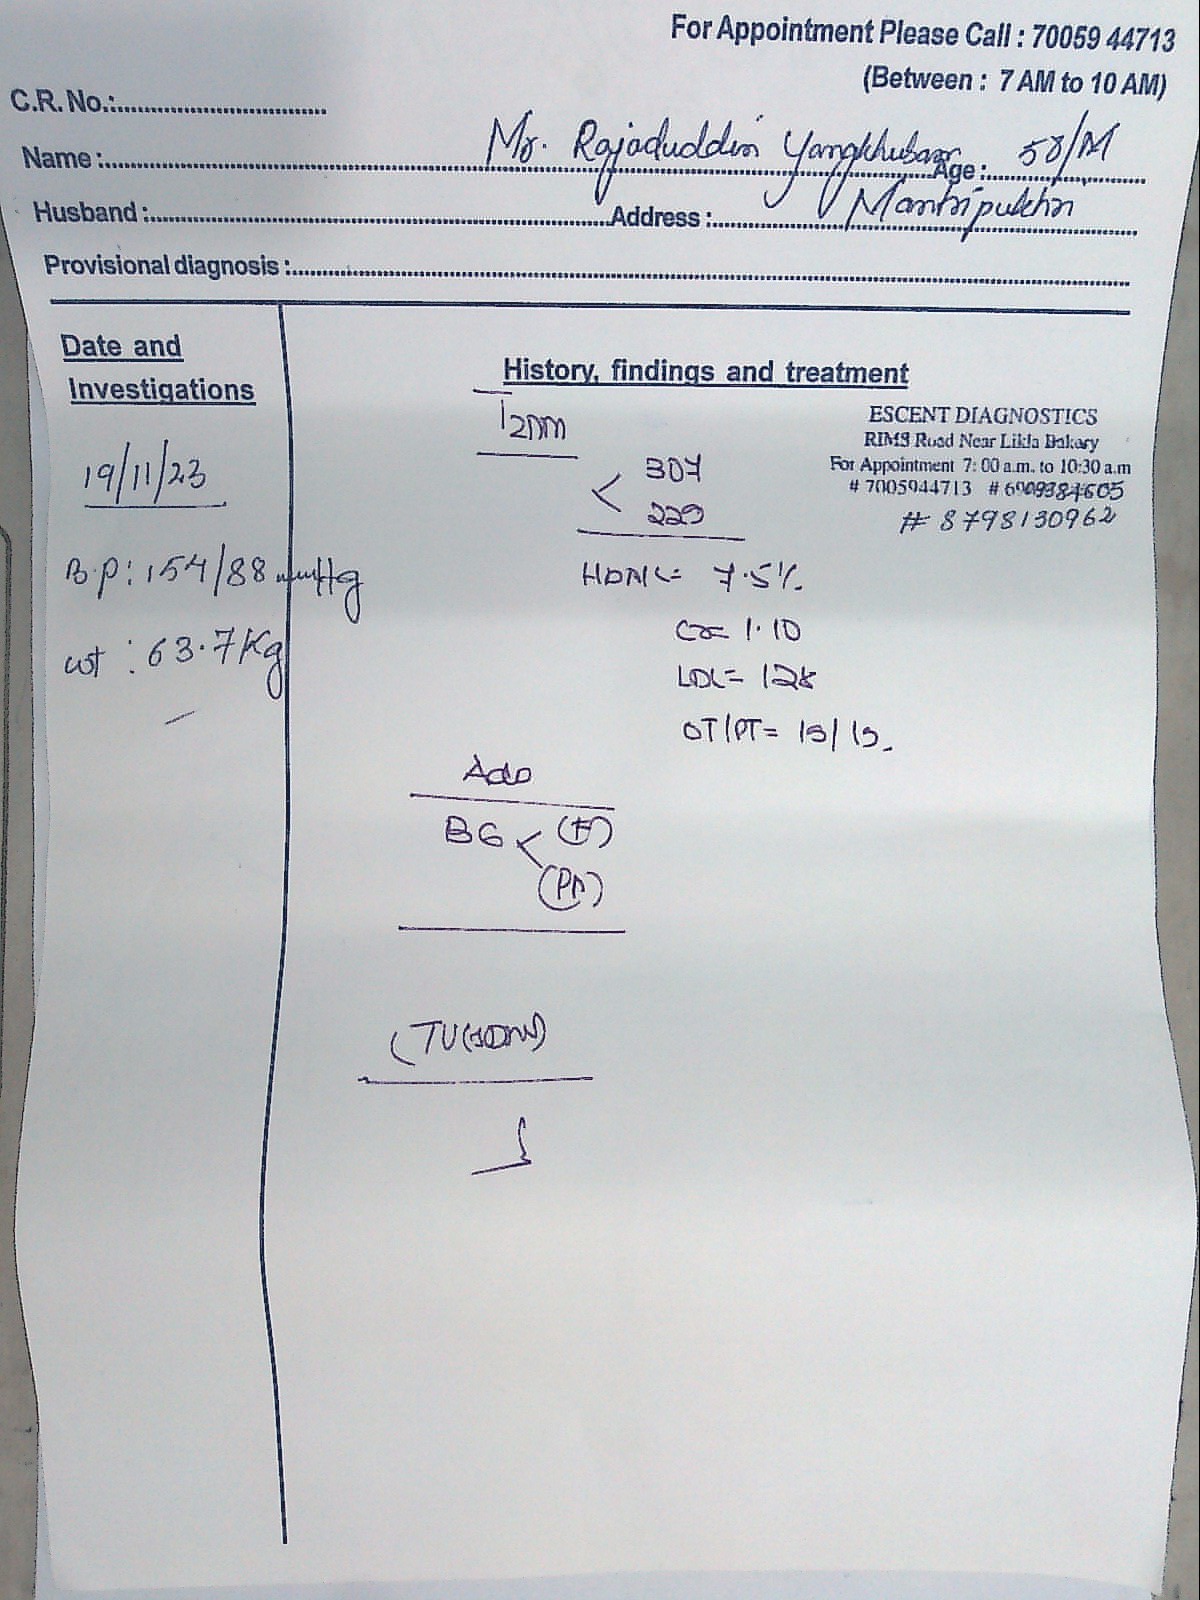 For Appointment Please Call : 70059 44713
(Between : 7 AM to 10 AM)
C.R. No.:
Name : Mr. Rajaduddin Age : 58/M
Husband : Address :
Provisional diagnosis :
Date and
Investigations
History, findings and treatment
19/11/23
B.P: 154/88 mmHg
wt : 63.7Kg
T2DM
ESCENT DIAGNOSTICS
RIMS Road Near Likla Bakery
For Appointment 7: 00 a.m. to 10:30 a.m
# 7005944713 # 6909384605
# 8798130962
< 307
229
= 7.5%
Cr= 1.10
LDL=
OT/PT=
BG < (F)
(PP)